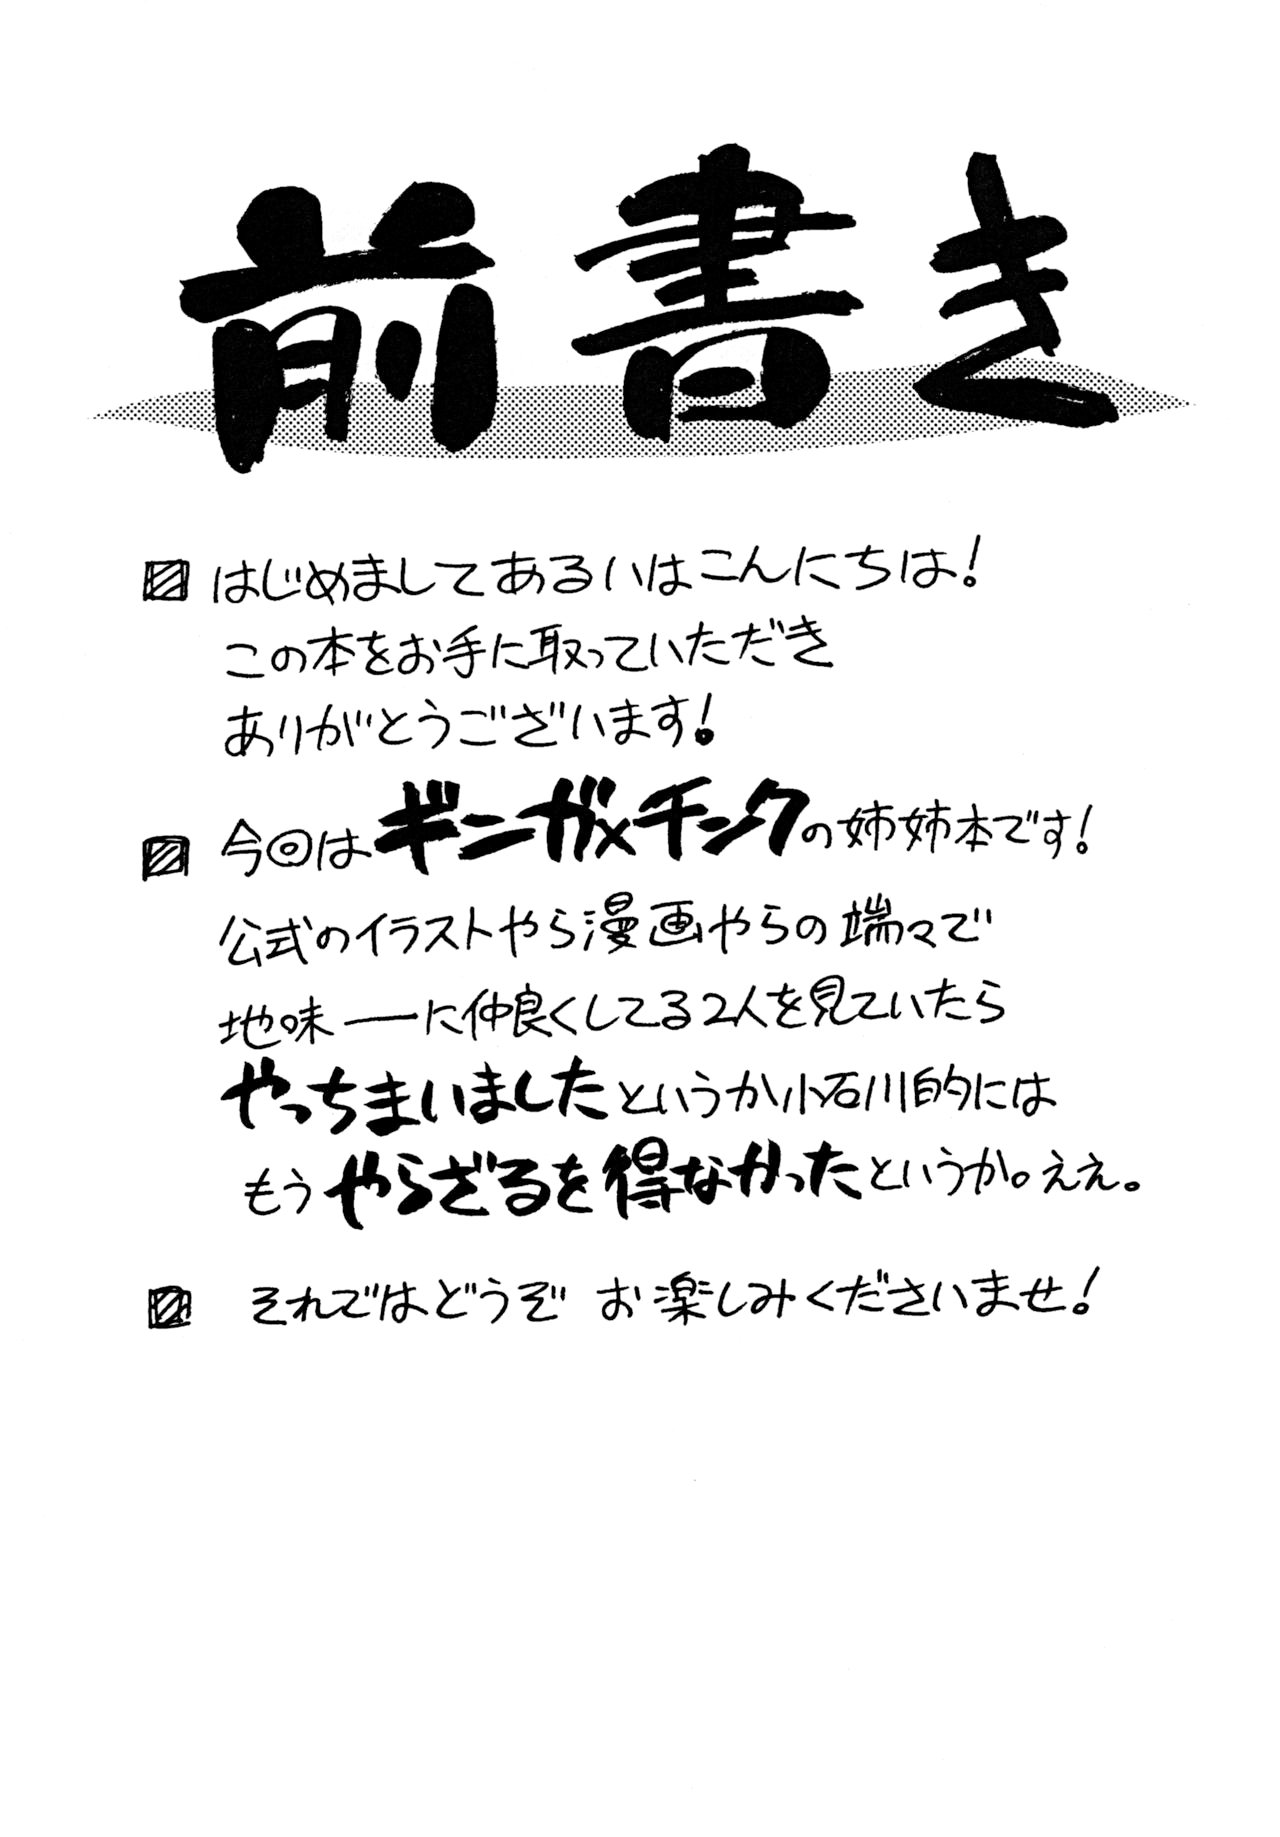 前書き
はじめましてあるいはこんにちは!
この本をお手に取っていただき
ありがとうございます!
今回はギンガ×チンクの姉姉本です!
公式のイラストやら漫画やらの端々で
地味──に仲良くしてる2人を見ていたら
やっちまいましたというか小石川的には
もうやらざるを得なかったというか。ええ。
それではどうぞ お楽しみくださいませ!